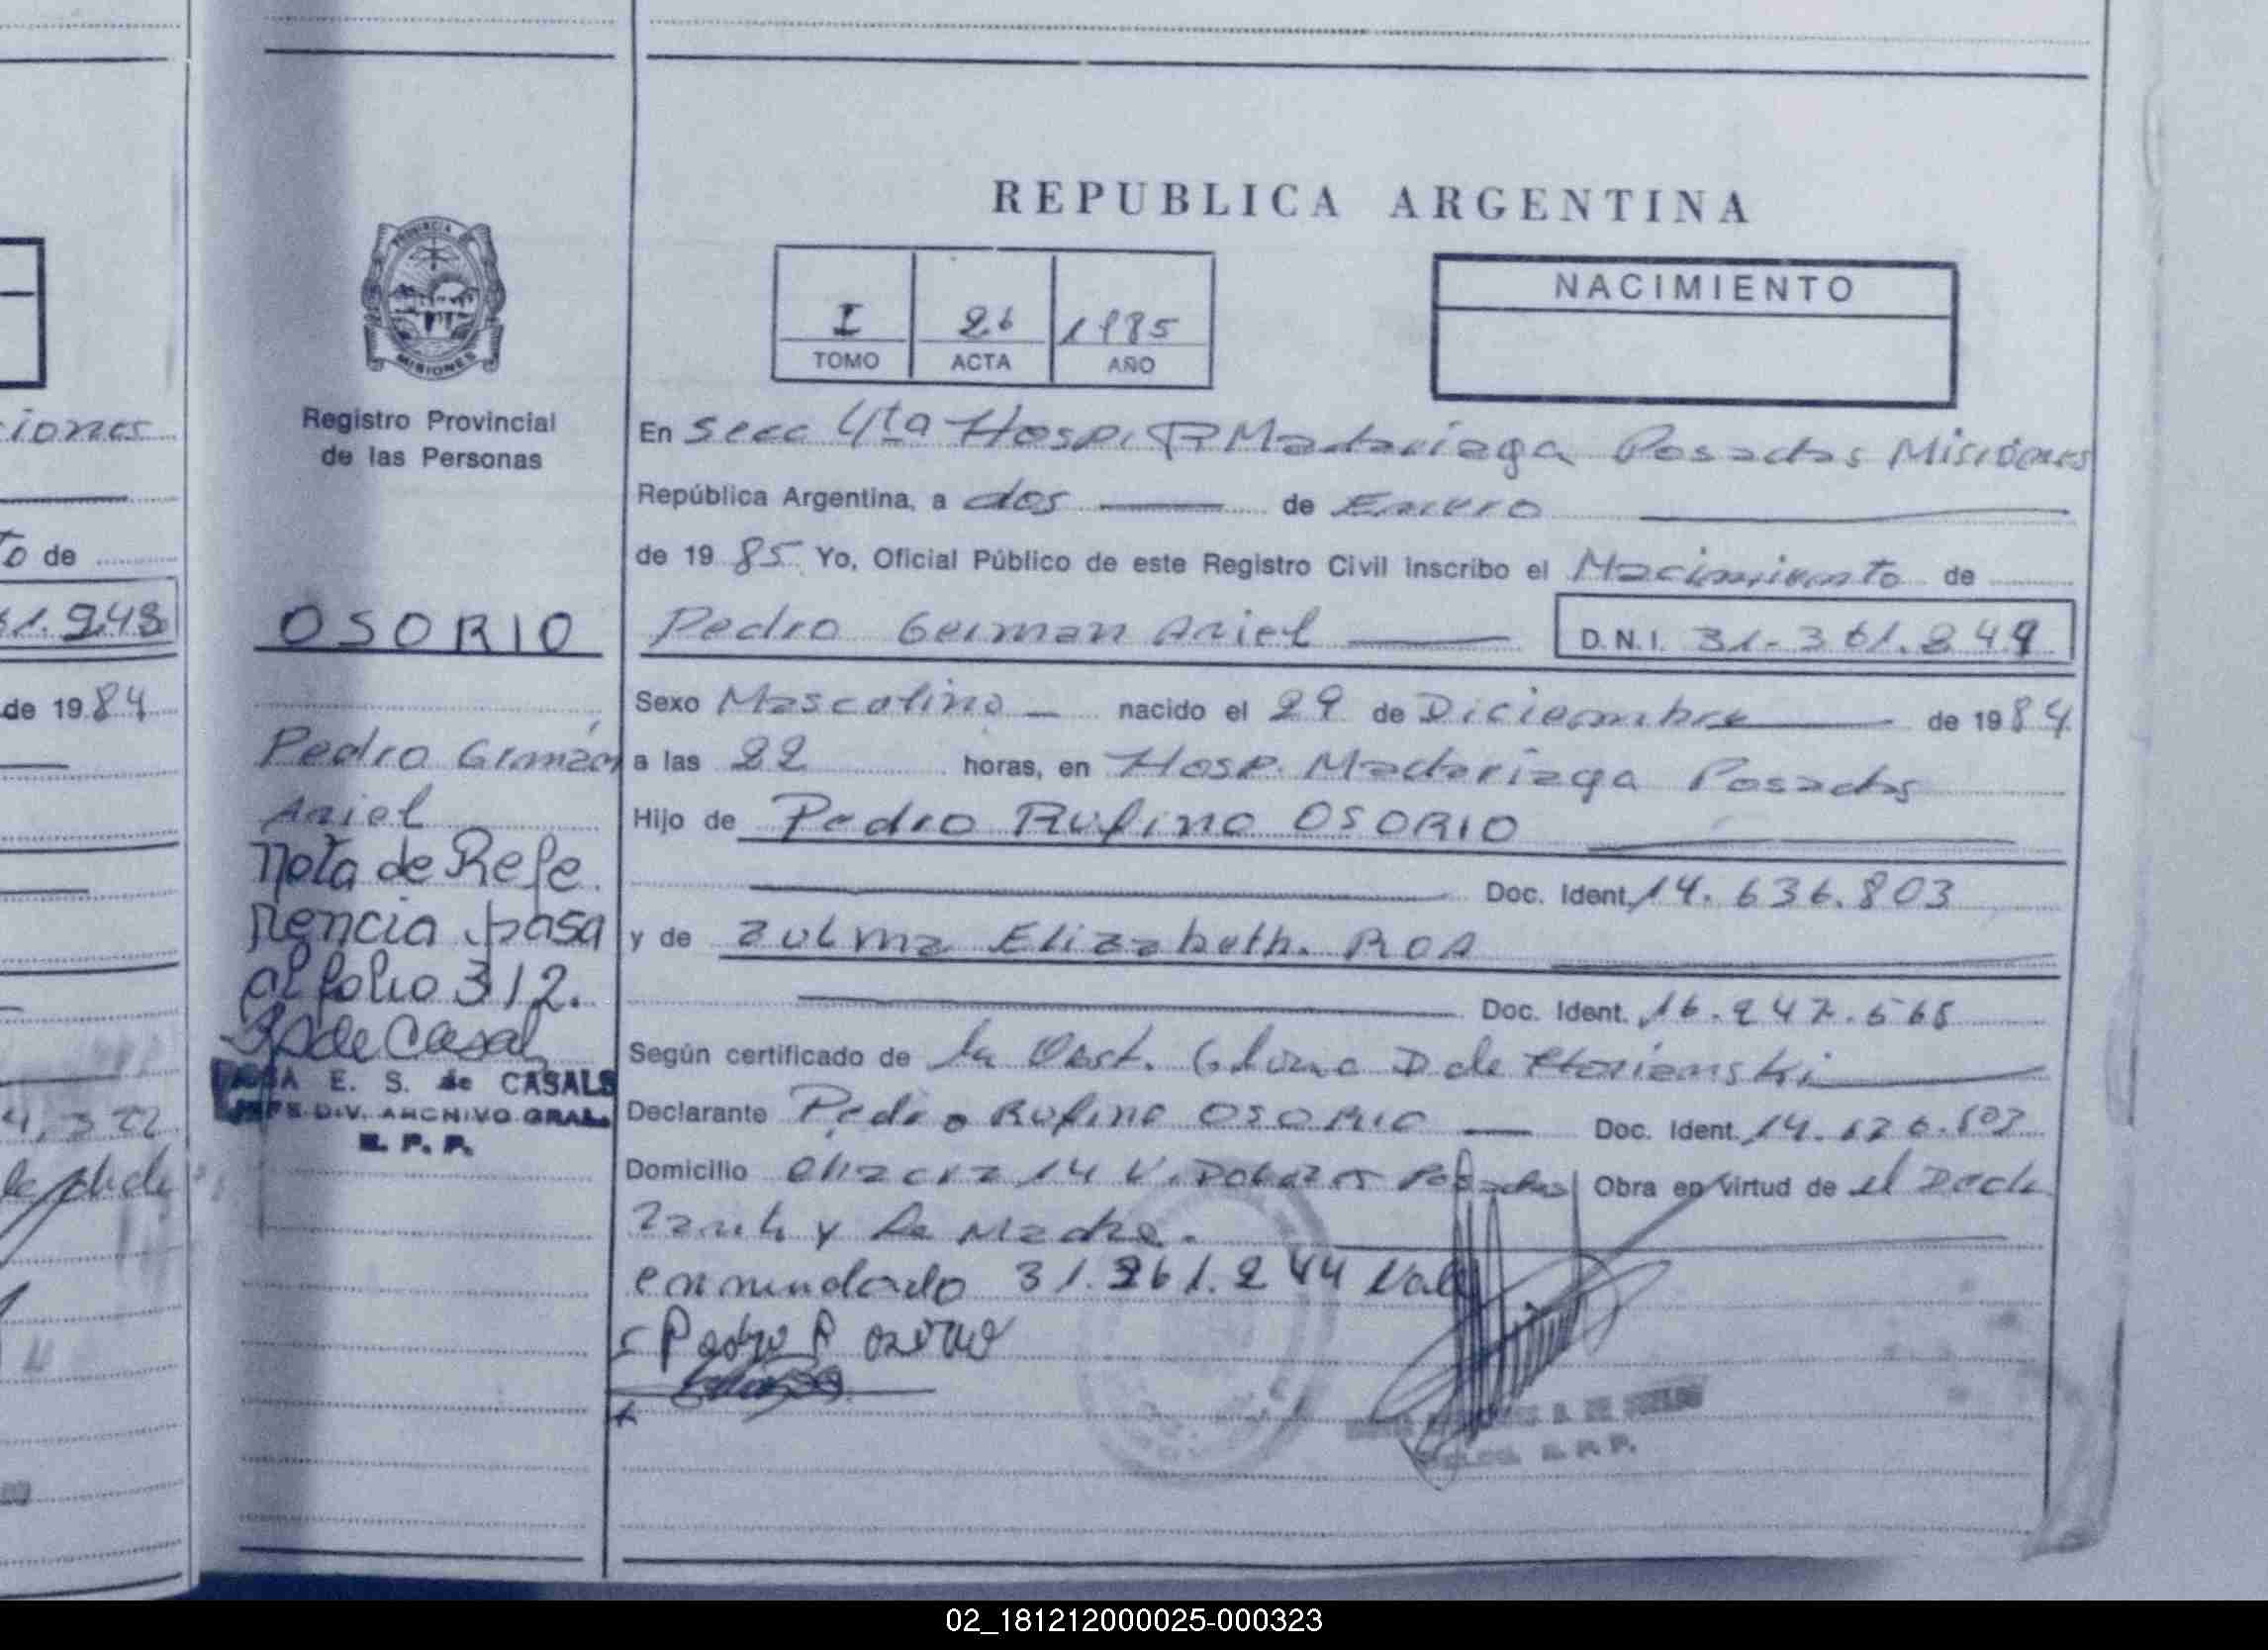 REPUBLICA ARGENTINA
PROVINCIA DE
MISIONES
Registro Provincial
de las Personas
I 26 1985
TOMO ACTA AÑO
NACIMIENTO
iones
En Secc 4ta Hosp. R Madariaga Posadas Misiones
República Argentina, a dos de Enero
to de
de 1985 Yo, Oficial Público de este Registro Civil inscribo el Nacimiento de
61.243
OSORIO
Pedro German Ariel D.N.I. 31-361.244
de 1984
Sexo Masculino nacido el 29 de Diciembre de 1984
Pedro Germán
a las 22 horas, en Hosp. Madariaga Posadas
Ariel
Hijo de Pedro Rufino OSORIO
Nota de Refe
Doc. Ident. 14.636.803
rencia pasa
y de Zulma Elizabeth. ROA
al folio 312.
Doc. Ident. 16.247.
de Casals
Según certificado de la Obst. D de
E. S. de CASALS
JEFE DIV. ARCHIVO GRAL.
R. P. P.
Declarante Pedro Rufino OSORIO Doc. Ident. 14.
Domicilio Chacra 14 Posadas Obra en virtud de el Decla
rante y la Madre.
enmendado 31.361.244 Vale
Pedro R Osorio
R. P. P.
02_181212000025-000323